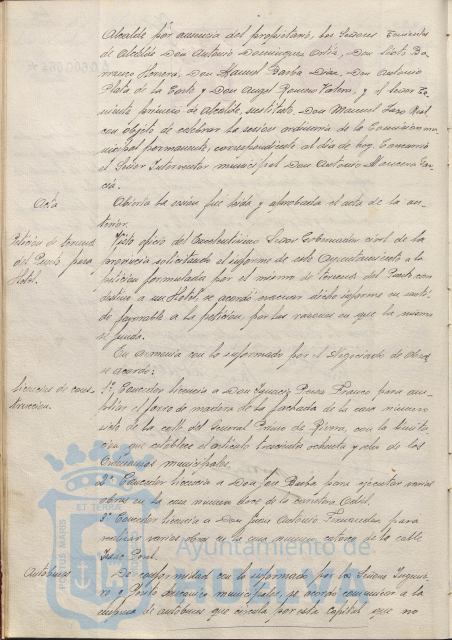 Alcalde por ausencia del propietario, los Señores Tenientes
de Alcalde Don Antonio Domínguez Ortiz, Don Sixto Ba-
rranco Herrera, Don Manuel Barba Díaz, Don Antonio
Plata de la Corte y Don Angel Romero Valero, y el Tercer Te-
niente primero de Alcalde, sustituto Don Manuel Lazo Real
con objeto de celebrar la sesión ordinaria de la Comisión mu-
nicipal permanente, correspondiente al día de hoy. Concurrió
el Señor Interventor municipal Don Antonio Mancera Gar-
cía.
Acta
Abierta la sesión fué leída y aprobada el acta de la an-
terior.
Petición de terreno
del Puerto para
Hotel.
Visto oficio del Excelentísimo Señor Gobernador civil de la
provincia solicitando el informe de este Ayuntamiento a la
petición formulada por el mismo de terrenos del Puerto con
destino a un Hotel, se acordó evacuar dicho informe en senti-
do favorable a la petición por las razones en que la misma
se funda.
En armonía con lo informado por el Negociado de Obras
se acordó:
Licencias de cons-
trucción.
1º Conceder licencia a Don Ignacio Ponce Franco para am-
pliar el forro de madera de la fachada de la casa número
siete de la calle del General Primo de Rivera, con la limita-
ción que establece el artículo trescientos ochenta y ocho de las
Ordenanzas municipales.
2º Conceder licencia a Don José Barba para ejecutar varias
obras en la casa número doce de la carretera Odiel.
3º Conceder licencia a Don Juan Antonio Fernández para
realizar varias obras en la casa número catorce de la calle
Isaac Peral.
Autobuses
De conformidad con lo informado por los Señores Ingenie-
ro y Perito mecánico municipales, se acordó comunicar a la
empresa de autobuses que circula por esta Capital que no
ET TERRA
PORTUS MARIS
Ayuntamiento de
HUELVA